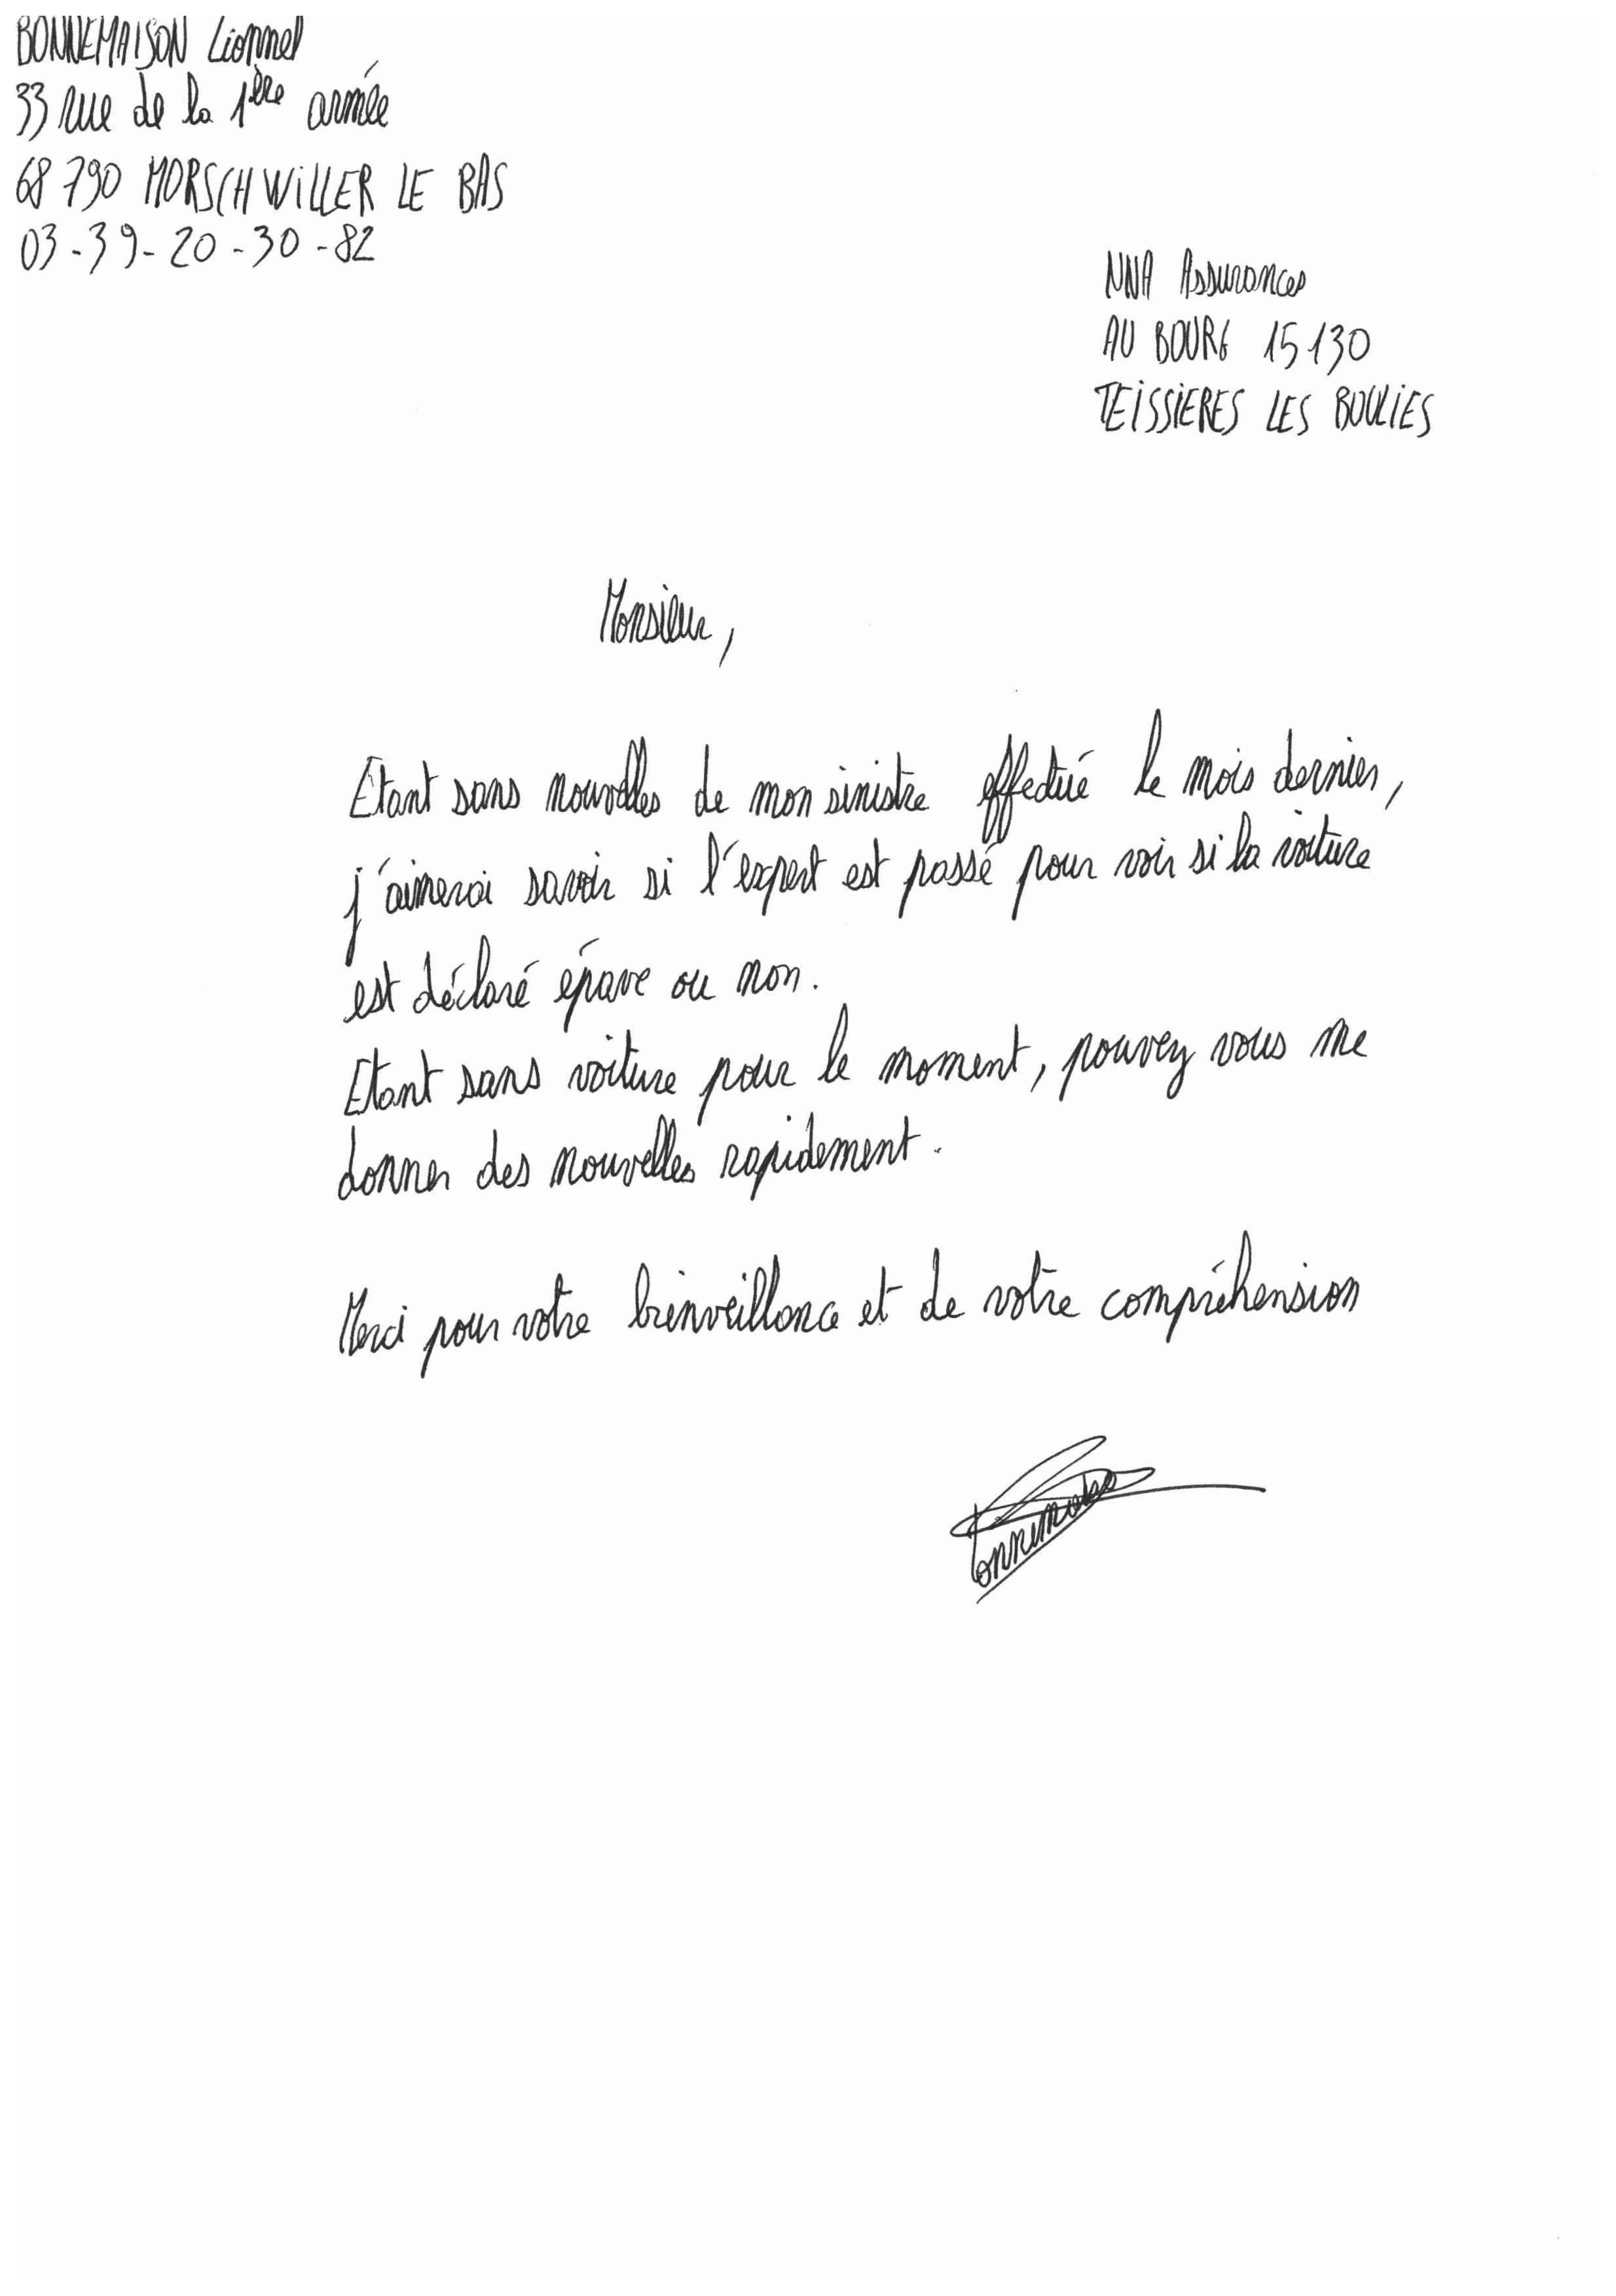 BONNEMAISON Lionnel
33 rue de la 1ère armée
68 790 MORSCHWILLER LE BAS
03-39-20-30-82
NNA Assurances
AU BOURG 15130
TEISSIERES LES BOULIES
Monsieur,
Etant sans nouvelles de mon sinistre effectué le mois dernier,
j'aimerai savoir si l'expert est passé pour voir si la voiture
est déclaré épave ou non.
Etant sans voiture pour le moment, pouvez vous me
donner des nouvelles rapidement.
Merci pour votre bienveillance et de votre compréhension